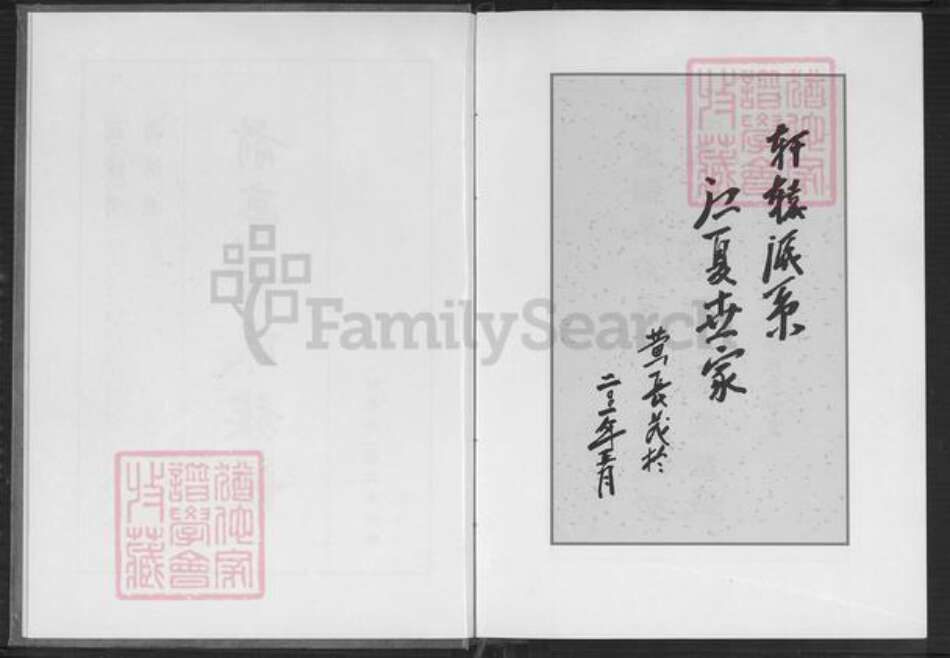 轩辕派系
江夏世家
黄長茂於
二〇一一年三月
猶他家
譜學會
收藏
FamilySearch
猶他家
譜學會
收藏